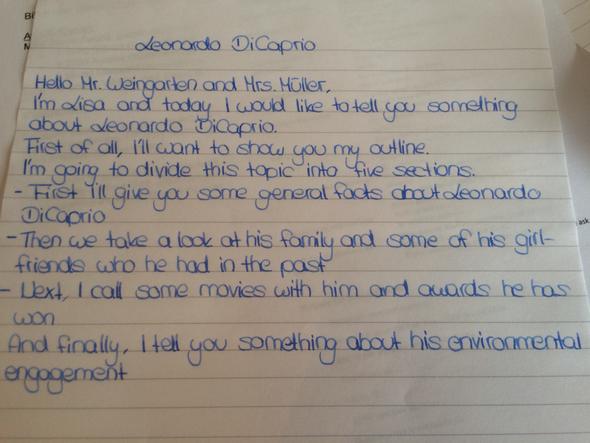 Leonardo DiCaprio
Hello Mr. Weingarten and Mrs. Müller,
I'm Lisa and today I would like to tell you something
about Leonardo DiCaprio.
First of all, I'll want to show you my outline.
I'm going to divide this topic into five sections.
- First I'll give you some general facts about Leonardo
DiCaprio
- Then we take a look at his family and some of his girl-
friends who he had in the past
- Next, I call some movies with him and awards he has
won
And finally, I tell you something about his environmental
engagement
ask